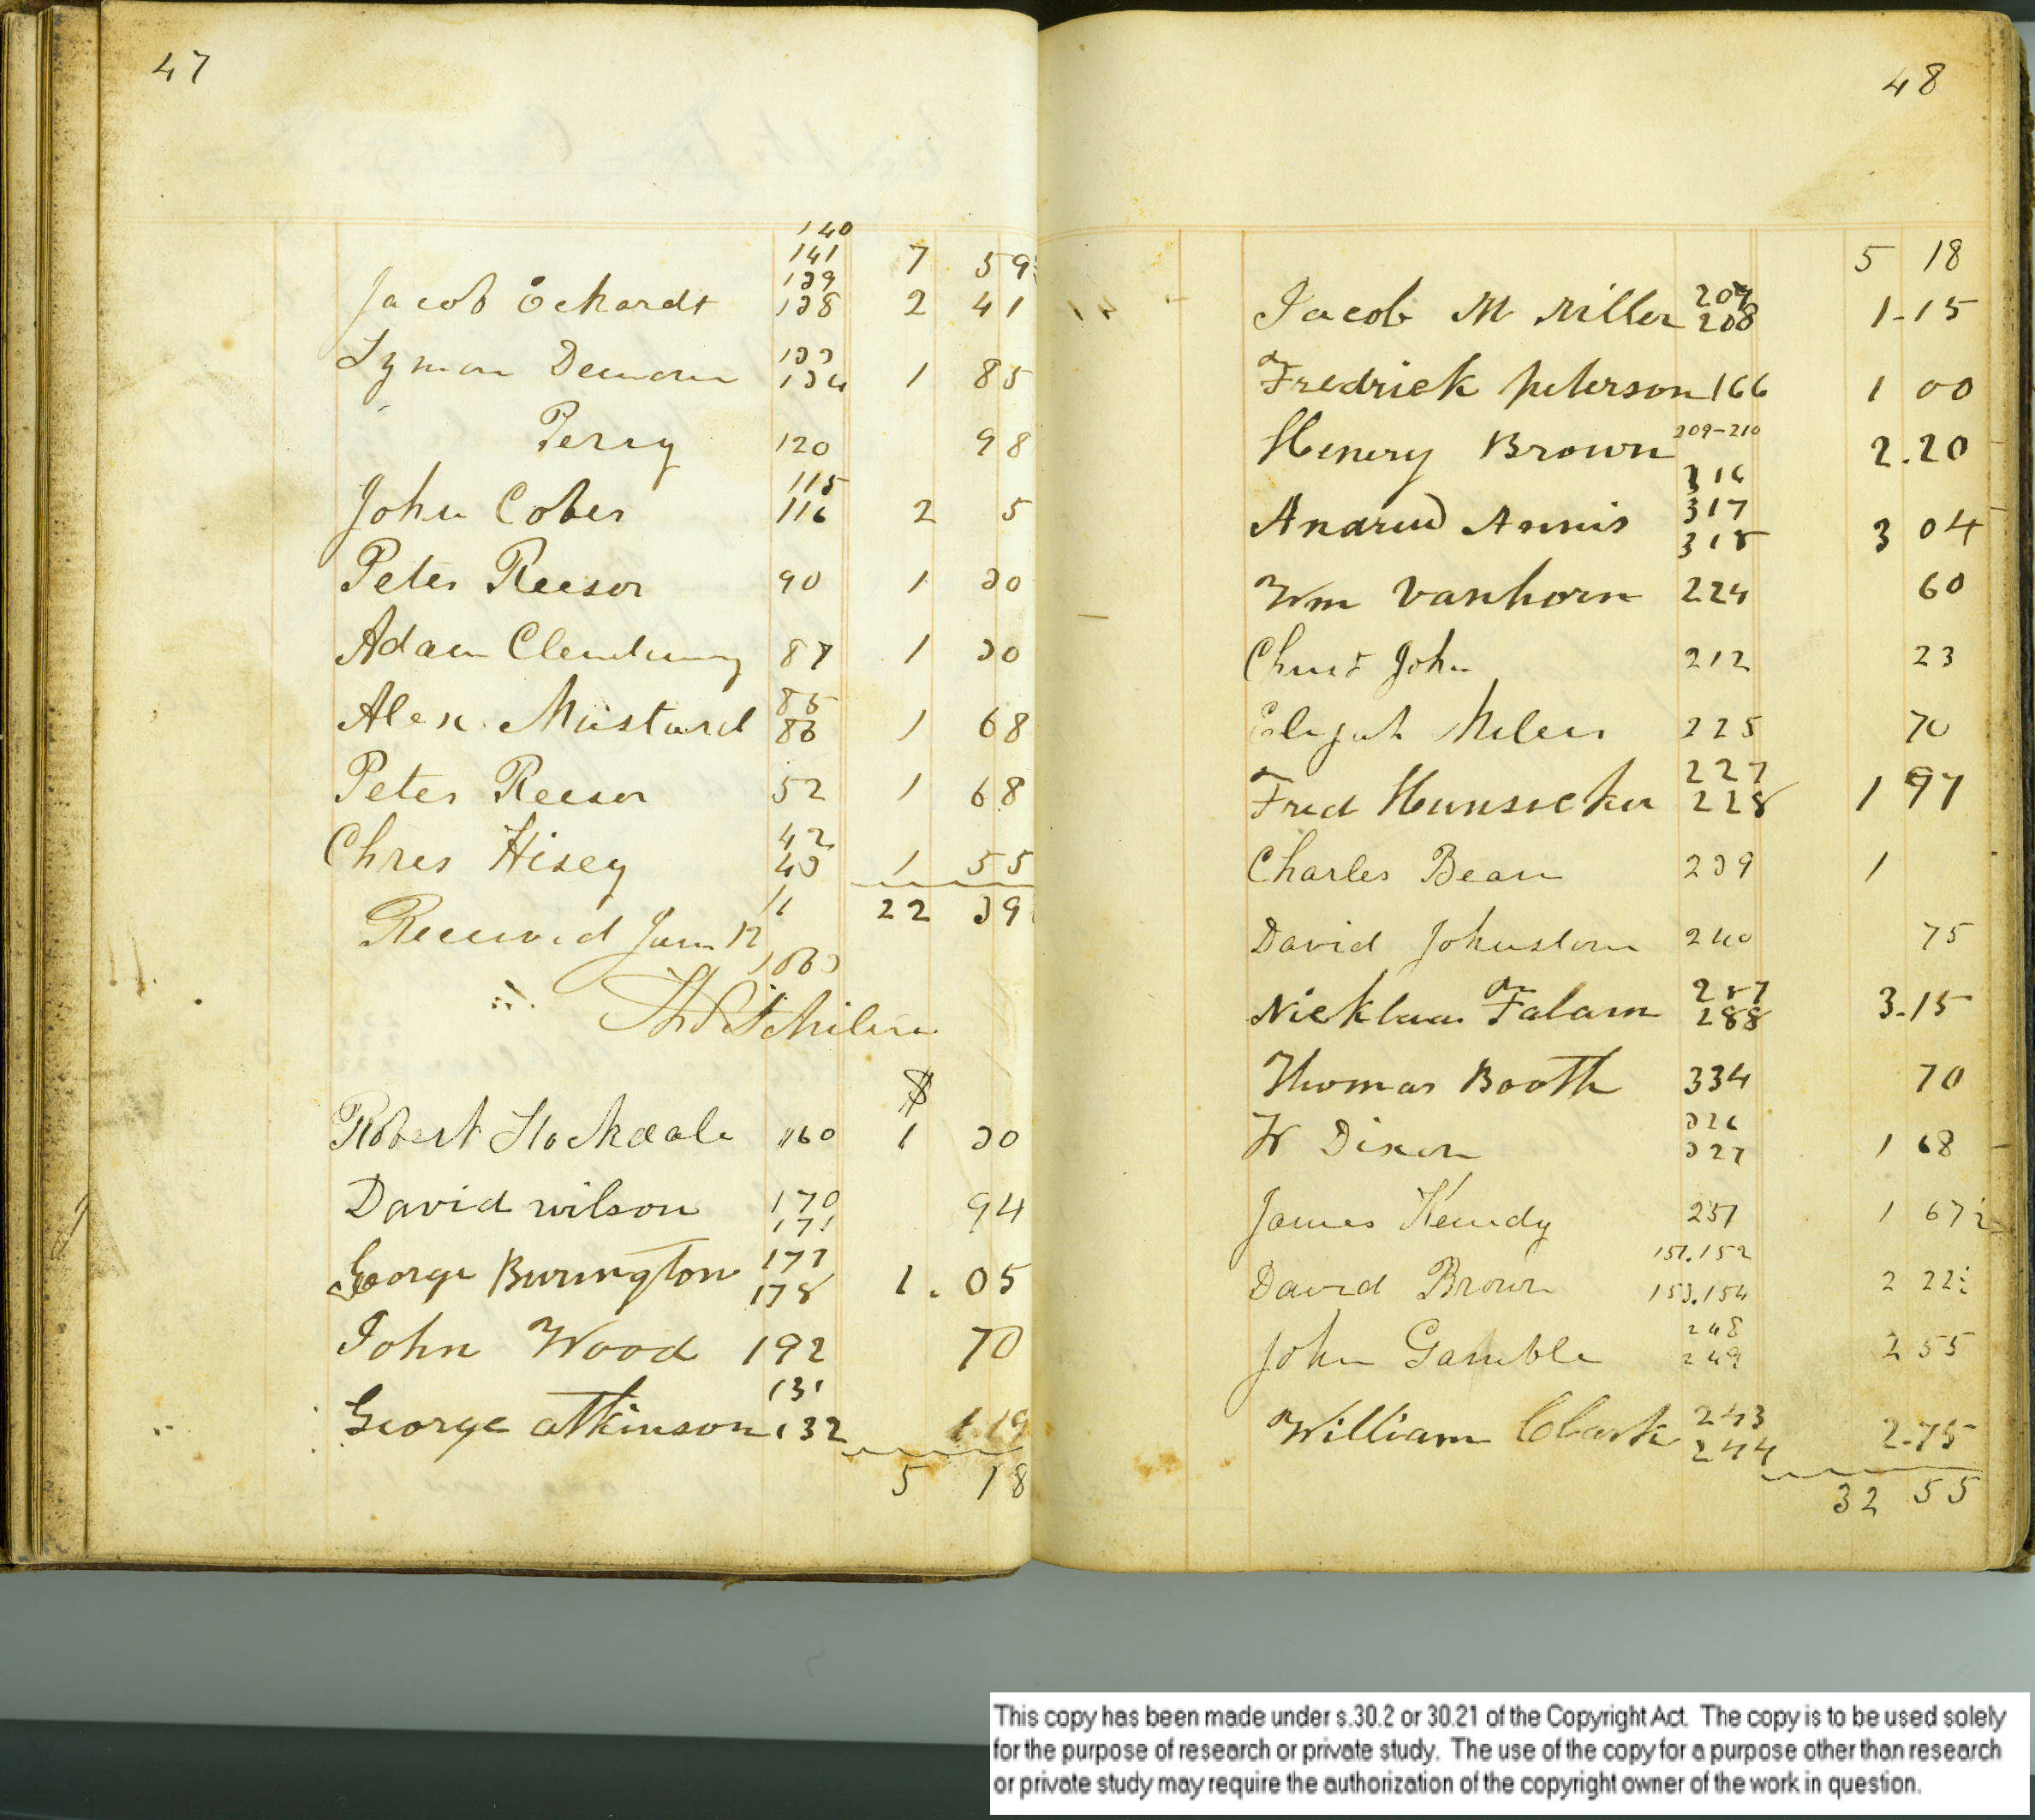 47
140
141 7 59
139
Jacob Eckardt 138 2 41
133
Lyman Demorn 134 1 85
Perry 120 98
115
John Cober 116 2 5
Peter Reesor 90 1 30
Adam Clendening 87 1 30
85
Alex. Mustard 86 1 68
Peter Reesor 52 1 68
42
Chres Hisey 43 1 55
11 22 39
Received Jan 12
1863
$
Robert Stockdale 160 1 30
David wilson 170 94
171
177
George Burington 178 1.05
John Wood 192 70
131
George atkinson 132 1.19
5 18
48
5 18
207
Jacob M Miller 208 1-15
Fredrick peterson 166 1 00
Henery Brown 209-210 2.20
316
Andrew Annis 317 3 04
318
Wm vanhorn 224 60
John 212 23
Elijah Miles 225 70
227
Fred Hunsicker 228 1 97
Charles Bean 239 1
David Johnston 240 75
287
Nicklaus Falam 288 3-15
Thomas Booth 334 70
326
W Dixon 327 1 68
James Kenedy 251 1 67½
151.152
David Brown 153.154 2 22½
248
John Gamble 249 2 55
243
William Clark 244 2-75
32 55
This copy has been made under s.30.2 or 30.21 of the Copyright Act. The copy is to be used solely
for the purpose of research or private study. The use of the copy for a purpose other than research
or private study may require the authorization of the copyright owner of the work in question.